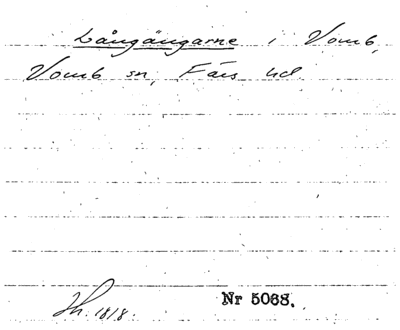 Långängarne i Vomb,
Vomb sn, Färs hd
Jh. 1818.
Nr 5068.